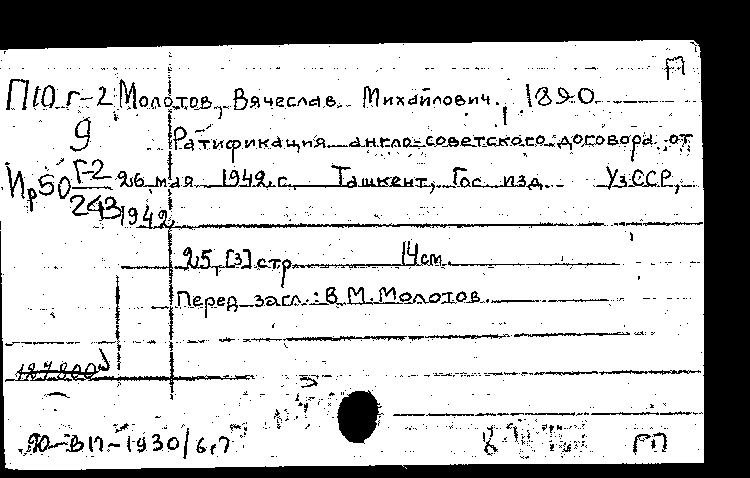 П
П10 г-2 Молотов, Вячеслав Михайлович, 1890
9 Ратификация англо-советского договора от
Ир50 Г-2/243 26 мая 1942 г. Ташкент, Гос. изд. УзССР,
1942.
25, [3] стр. 14 см.
Перед загл.: В.М.Молотов.
127800
ЯО-ВП-1930/6,7
РП